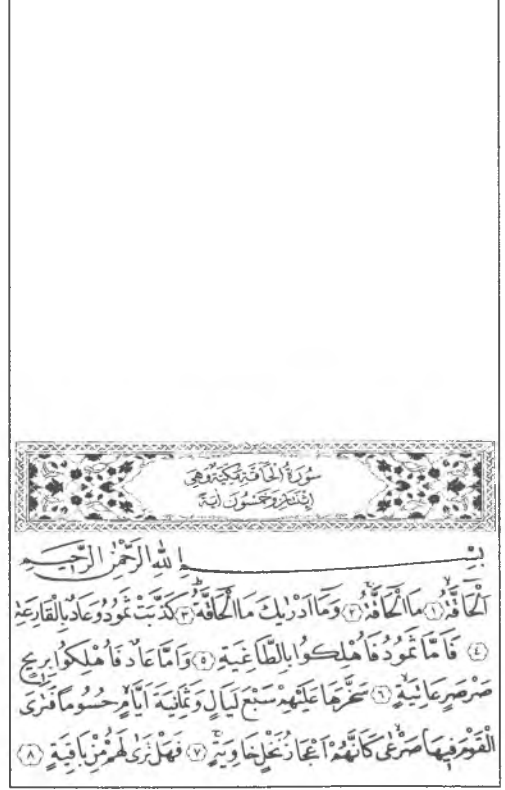 سُورَةُ الْحَاقَّةِ مَكِّيَّةٌ وَهِىَ
اِثْنَتَانِ وَخَمْسُونَ اٰيَةً
بِسْمِ اللّٰهِ الرَّحْمٰنِ الرَّحِيمِ
اَلْحَاقَّةُۙ ﴿١﴾ مَا الْحَاقَّةُۚ ﴿٢﴾ وَمَٓا اَدْرٰيكَ مَا الْحَاقَّةُۜ ﴿٣﴾ كَذَّبَتْ ثَمُودُ وَعَادٌ بِالْقَارِعَةِ
﴿٤﴾ فَاَمَّا ثَمُودُ فَاُهْلِكُوا بِالطَّاغِيَةِ ﴿٥﴾ وَاَمَّا عَادٌ فَاُهْلِكُوا بِرِيحٍ
صَرْصَرٍ عَاتِيَةٍۙ ﴿٦﴾ سَخَّرَهَا عَلَيْهِمْ سَبْعَ لَيَالٍ وَثَمَانِيَةَ اَيَّامٍۙ حُسُومًا فَتَرَى
الْقَوْمَ فِيهَا صَرْعٰىۙ كَاَنَّهُمْ اَعْجَازُ نَخْلٍ خَاوِيَةٍۚ ﴿٧﴾ فَهَلْ تَرٰى لَهُمْ مِنْ بَاقِيَةٍ ﴿٨﴾